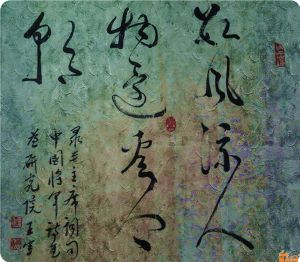 数风流人
物还看今
朝
录毛主席词句
中国将军
研究院王